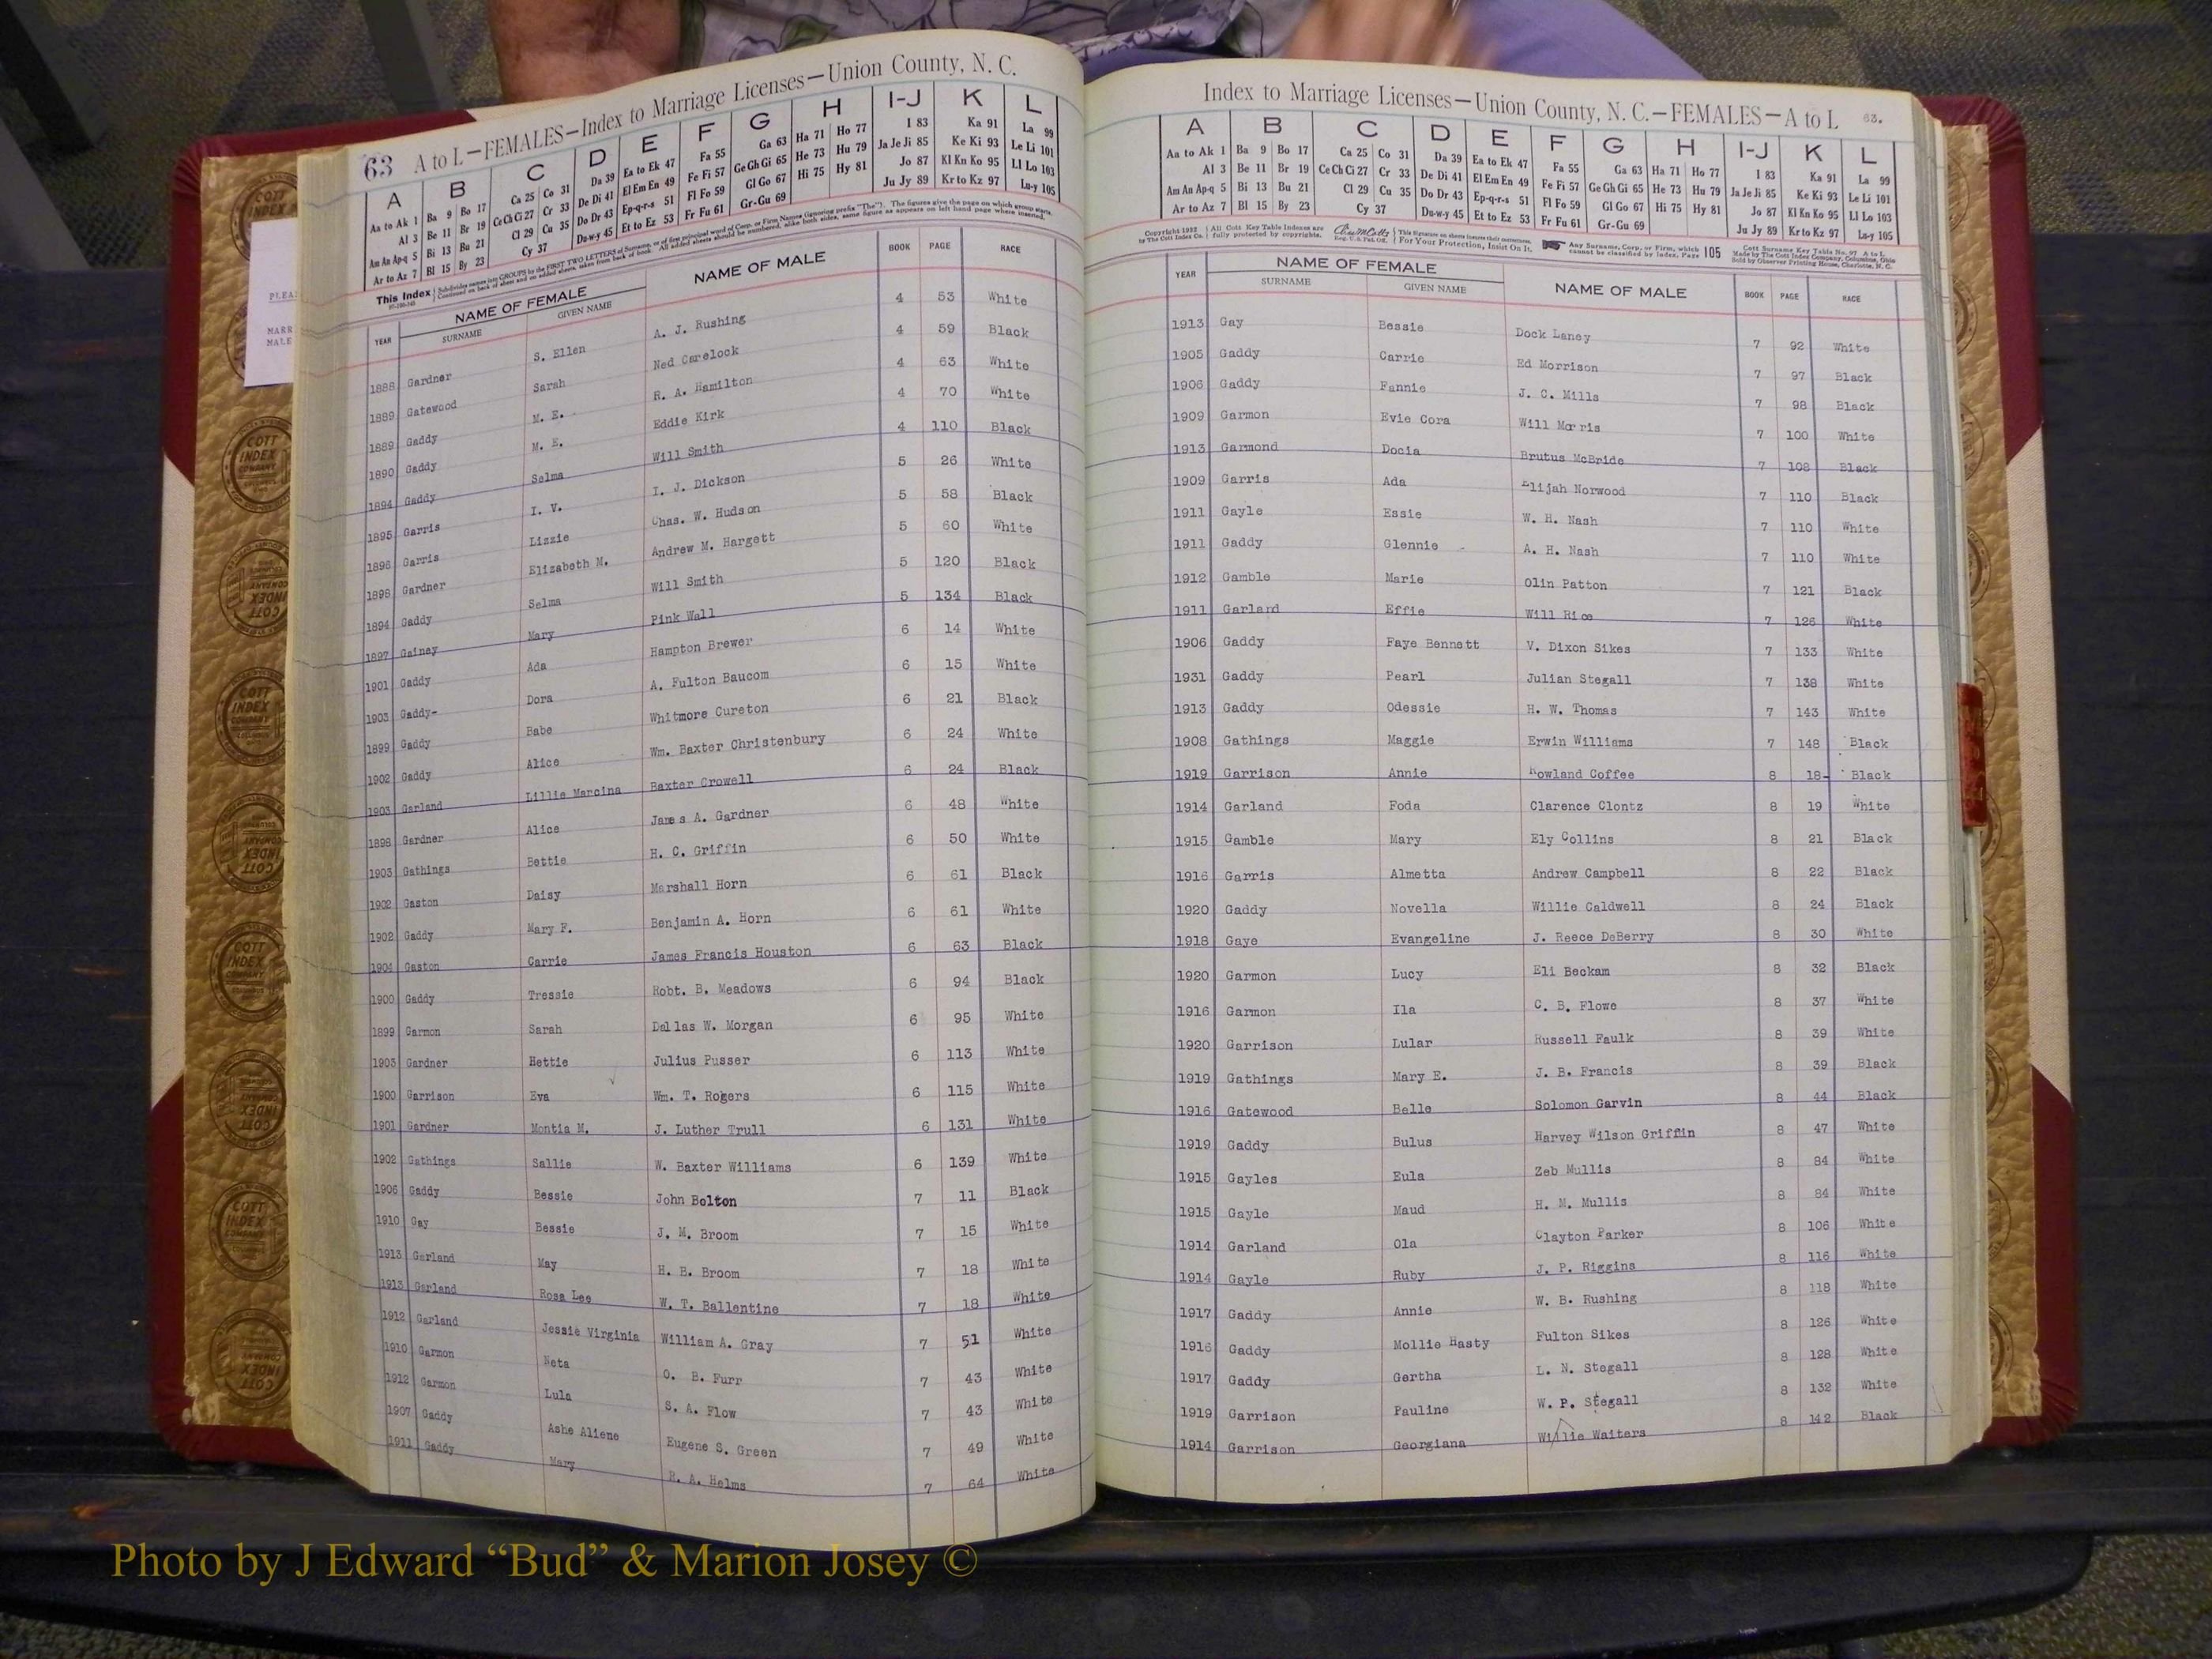 63 A to L—FEMALES—Index to Marriage Licenses—Union County, N. C.
A B C D E F G H I-J K L
Aa to Ak 1 Ba 9 Bo 17 Ca 25 Co 31 Da 39 Ea to Ek 47 Fa 55 Ga 63 Ha 71 Ho 77 I 83 Ka 91 La 99
Al 3 Be 11 Br 19 Ce Ch Ci 27 Cr 33 De Di 41 El Em En 49 Fe Fi 57 Ge Gh Gi 65 He 73 Hu 79 Ja Je Ji 85 Ke Ki 93 Le Li 101
Am An Ap-q 5 Bi 13 Bu 21 Cl 29 Cu 35 Do Dr 43 Ep-q-r-s 51 Fl Fo 59 Gl Go 67 Hi 75 Hy 81 Jo 87 Kl Kn Ko 95 Ll Lo 103
Ar to Az 7 Bl 15 By 23 Cy 37 Du-w-y 45 Et to Ez 53 Fr Fu 61 Gr-Gu 69 Ju Jy 89 Kr to Kz 97 Lu-y 105
This Index
YEAR NAME OF FEMALE SURNAME GIVEN NAME NAME OF MALE BOOK PAGE RACE
1888 Gardner S. Ellen A. J. Rushing 4 53 White
1889 Gatewood Sarah Ned Carelock 4 59 Black
1889 Gaddy M. E. R. A. Hamilton 4 63 White
1890 Gaddy M. E. Eddie Kirk 4 70 White
1894 Gaddy Selma Will Smith 4 110 Black
1895 Garris I. V. I. J. Dickson 5 26 White
1896 Garris Lizzie Chas. W. Hudson 5 58 Black
1898 Gardner Elizabeth M. Andrew M. Hargett 5 60 White
1894 Gaddy Selma Will Smith 5 120 Black
1897 Gainey Mary Pink Wall 5 134 Black
1901 Gaddy Ada Hampton Brewer 6 14 White
1903 Gaddy- Dora A. Fulton Baucom 6 15 White
1899 Gaddy Babe Whitmore Cureton 6 21 Black
1902 Gaddy Alice Wm. Baxter Christenbury 6 24 White
1903 Garland Lillie Marcina Baxter Crowell 6 24 Black
1898 Gardner Alice James A. Gardner 6 48 White
1903 Gathings Bettie H. C. Griffin 6 50 White
1902 Gaston Daisy Marshall Horn 6 61 Black
1902 Gaddy Mary F. Benjamin A. Horn 6 61 White
1904 Gaston Carrie James Francis Houston 6 63 Black
1900 Gaddy Tressie Robt. B. Meadows 6 94 Black
1899 Garmon Sarah Dallas W. Morgan 6 95 White
1903 Gardner Hettie Julius Pusser 6 113 White
1900 Garrison Eva Wm. T. Rogers 6 115 White
1901 Gardner Montia M. J. Luther Trull 6 131 White
1902 Gathings Sallie W. Baxter Williams 6 139 White
1906 Gaddy Bessie John Bolton 7 11 Black
1910 Gay Bessie J. M. Broom 7 15 White
1913 Garland May H. B. Broom 7 18 White
1913 Garland Rosa Lee W. T. Ballentine 7 18 White
1912 Garland Jessie Virginia William A. Gray 7 51 White
1910 Garmon Neta O. B. Furr 7 43 White
1912 Garmon Lula S. A. Flow 7 43 White
1907 Gaddy Ashe Aliene Eugene S. Green 7 49 White
1911 Gaddy Mary R. A. Helms 7 64 White
Index to Marriage Licenses—Union County, N. C.—FEMALES—A to L 63.
A B C D E F G H I-J K L
Aa to Ak 1 Ba 9 Bo 17 Ca 25 Co 31 Da 39 Ea to Ek 47 Fa 55 Ga 63 Ha 71 Ho 77 I 83 Ka 91 La 99
Al 3 Be 11 Br 19 Ce Ch Ci 27 Cr 33 De Di 41 El Em En 49 Fe Fi 57 Ge Gh Gi 65 He 73 Hu 79 Ja Je Ji 85 Ke Ki 93 Le Li 101
Am An Ap-q 5 Bi 13 Bu 21 Cl 29 Cu 35 Do Dr 43 Ep-q-r-s 51 Fl Fo 59 Gl Go 67 Hi 75 Hy 81 Jo 87 Kl Kn Ko 95 Ll Lo 103
Ar to Az 7 Bl 15 By 23 Cy 37 Du-w-y 45 Et to Ez 53 Fr Fu 61 Gr-Gu 69 Ju Jy 89 Kr to Kz 97 Lu-y 105
Copyright 1932 by The Cott Index Co. All Cott Key Table Indexes are fully protected by copyrights. For Your Protection, Insist On It. Any Surname, Corp. or Firm, which cannot be classified by Index, Page 105
YEAR NAME OF FEMALE SURNAME GIVEN NAME NAME OF MALE BOOK PAGE RACE
1913 Gay Bessie Dock Laney 7 92 White
1905 Gaddy Carrie Ed Morrison 7 97 Black
1906 Gaddy Fannie J. C. Mills 7 98 Black
1909 Garmon Evie Cora Will Morris 7 100 White
1913 Garmond Docia Brutus McBride 7 108 Black
1909 Garris Ada Elijah Norwood 7 110 Black
1911 Gayle Essie W. H. Nash 7 110 White
1911 Gaddy Glennie - A. H. Nash 7 110 White
1912 Gamble Marie Olin Patton 7 121 Black
1911 Garland Effie Will Rice 7 126 White
1906 Gaddy Faye Bennett V. Dixon Sikes 7 133 White
1931 Gaddy Pearl Julian Stegall 7 138 White
1913 Gaddy Odessie H. W. Thomas 7 143 White
1908 Gathings Maggie Erwin Williams 7 148 Black
1919 Garrison Annie Rowland Coffee 8 18- Black
1914 Garland Foda Clarence Clontz 8 19 White
1915 Gamble Mary Ely Collins 8 21 Black
1916 Garris Almetta Andrew Campbell 8 22 Black
1920 Gaddy Novella Willie Caldwell 8 24 Black
1918 Gaye Evangeline J. Reece DeBerry 8 30 White
1920 Garmon Lucy Eli Beckam 8 32 Black
1916 Garmon Ila C. B. Flowe 8 37 White
1920 Garrison Lular Russell Faulk 8 39 White
1919 Gathings Mary E. J. B. Francis 8 39 Black
1916 Gatewood Belle Solomon Garvin 8 44 Black
1919 Gaddy Bulus Harvey Wilson Griffin 8 47 White
1915 Gayles Eula Zeb Mullis 8 84 White
1915 Gayle Maud H. M. Mullis 8 84 White
1914 Garland Ola Clayton Parker 8 106 White
1914 Gayle Ruby J. P. Riggins 8 116 White
1917 Gaddy Annie W. B. Rushing 8 118 White
1916 Gaddy Mollie Hasty Fulton Sikes 8 126 White
1917 Gaddy Gertha L. N. Stegall 8 128 White
1919 Garrison Pauline W. P. Stegall 8 132 White
1914 Garrison Georgiana Willie Waiters 8 142 Black
Photo by J Edward “Bud” & Marion Josey ©